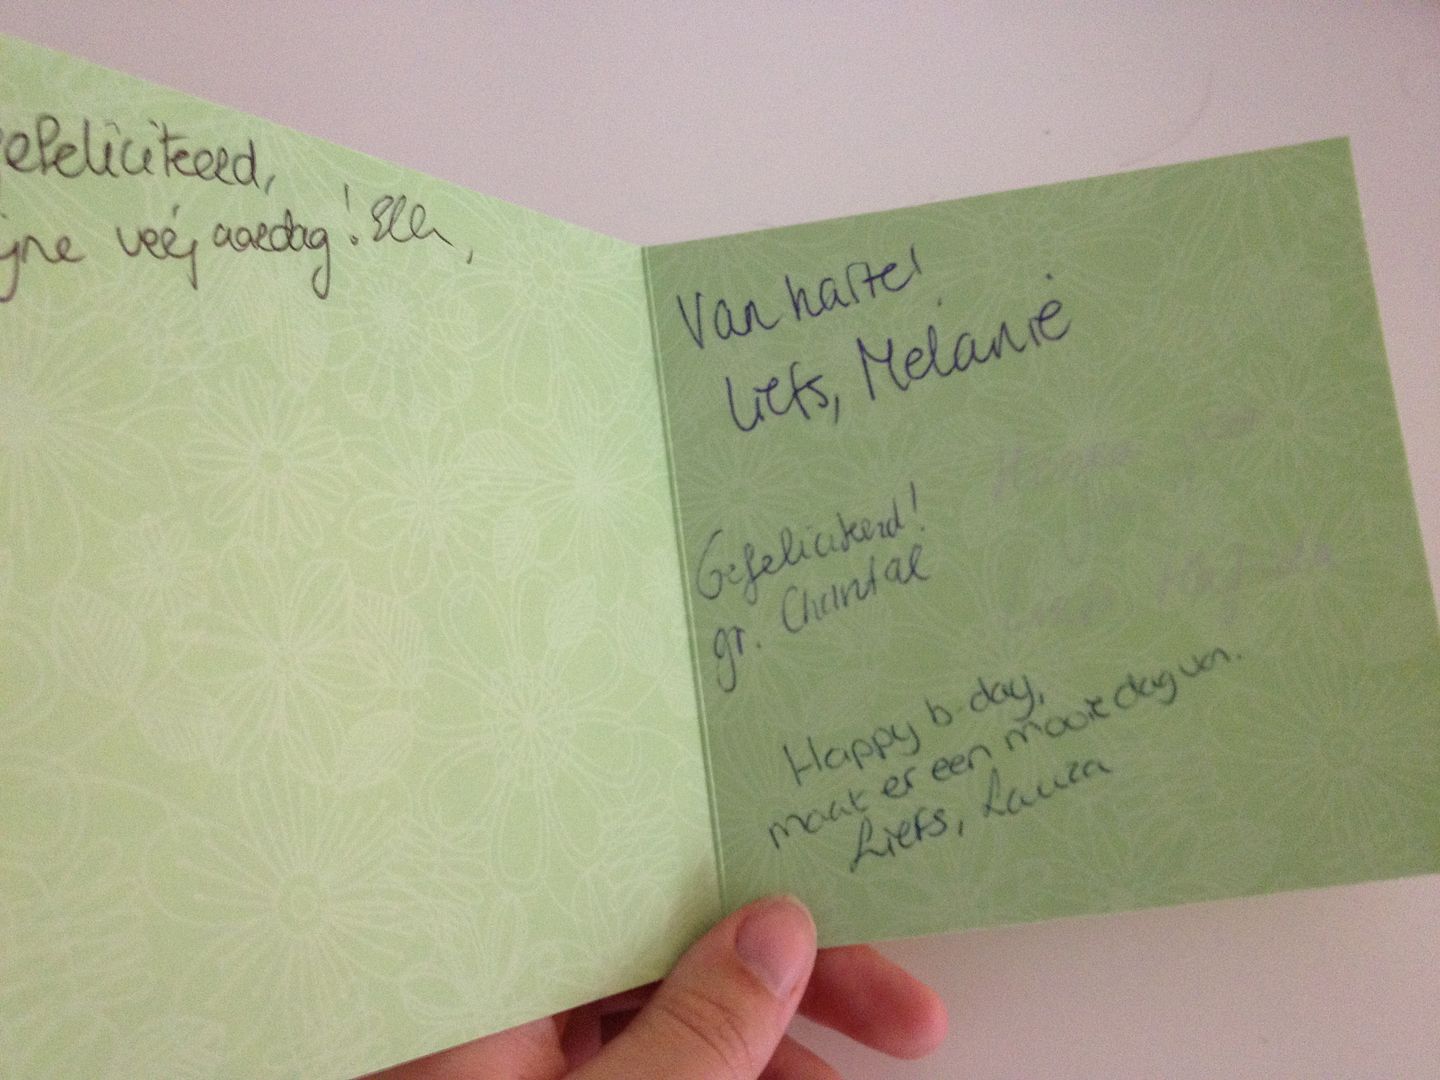 gefeliciteerd,
ijne verjaardag! Ella,
Van harte!
Liefs, Melanie
Gefeliciteerd!
gr. Chantal
Happy b-day,
maak er een mooie dag van.
Liefs, Laura